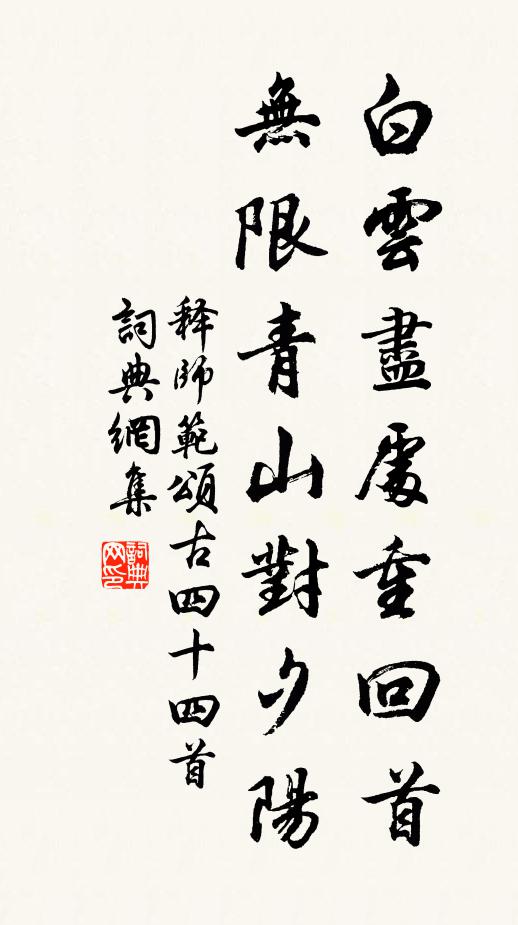 白雲盡處重回首
無限青山對夕陽
释師範頌古四十四首
詞典網集
詞典网印